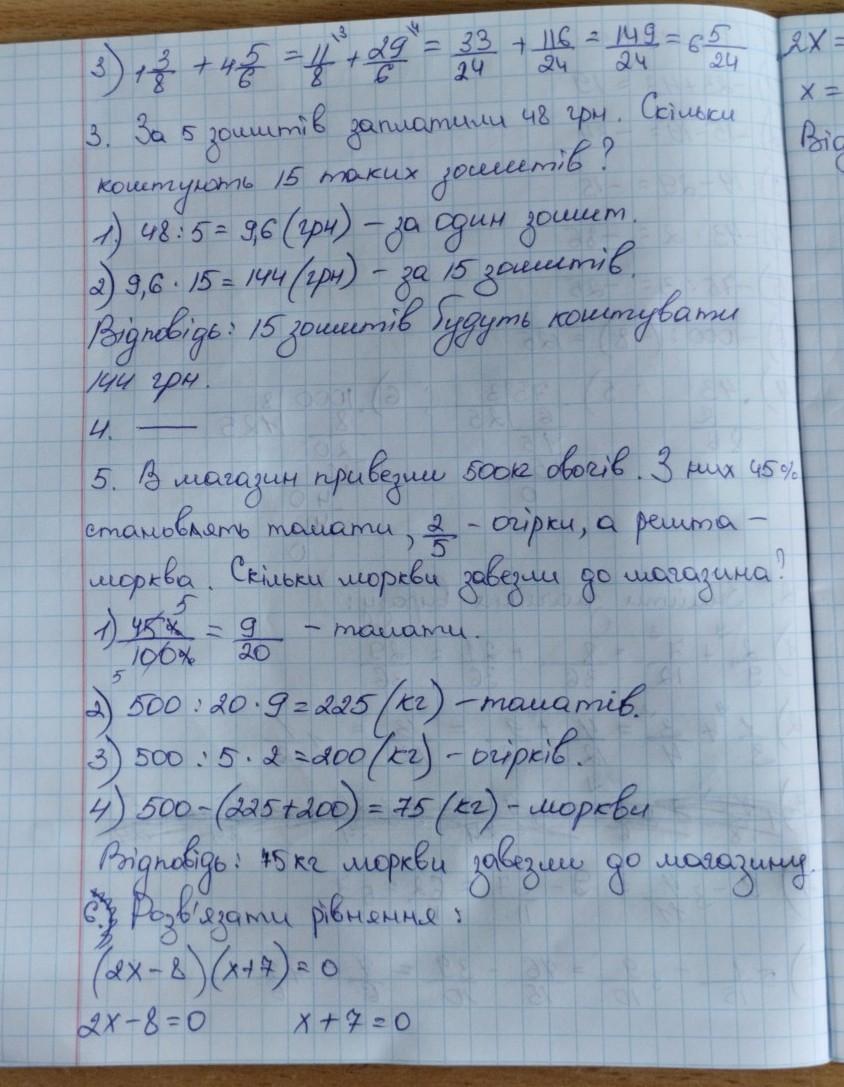 3) 1 3/8 + 4 5/6 = 11/8 ³ + 29/6 ⁴ = 33/24 + 116/24 = 149/24 = 6 5/24
3. За 5 зошитів заплатили 48 грн. Скільки
коштують 15 таких зошитів?
1) 48 : 5 = 9,6 (грн) – за один зошит.
2) 9,6 · 15 = 144 (грн) – за 15 зошитів.
Відповідь: 15 зошитів будуть коштувати
144 грн.
4. —
5. В магазин привезли 500кг овочів. З них 45%
становлять томати, 2/5 – огірки, а решта –
морква. Скільки моркви завезли до магазина?
1) 45%/100% = 9/20 – томати.
2) 500 : 20 · 9 = 225 (кг) – томатів.
3) 500 : 5 · 2 = 200 (кг) – огірків.
4) 500 – (225 + 200) = 75 (кг) – моркви
Відповідь: 75 кг моркви завезли до магазину.
6. Розв'язати рівняння:
(2x – 8)(x + 7) = 0
2x – 8 = 0 x + 7 = 0
2x =
x =
Від